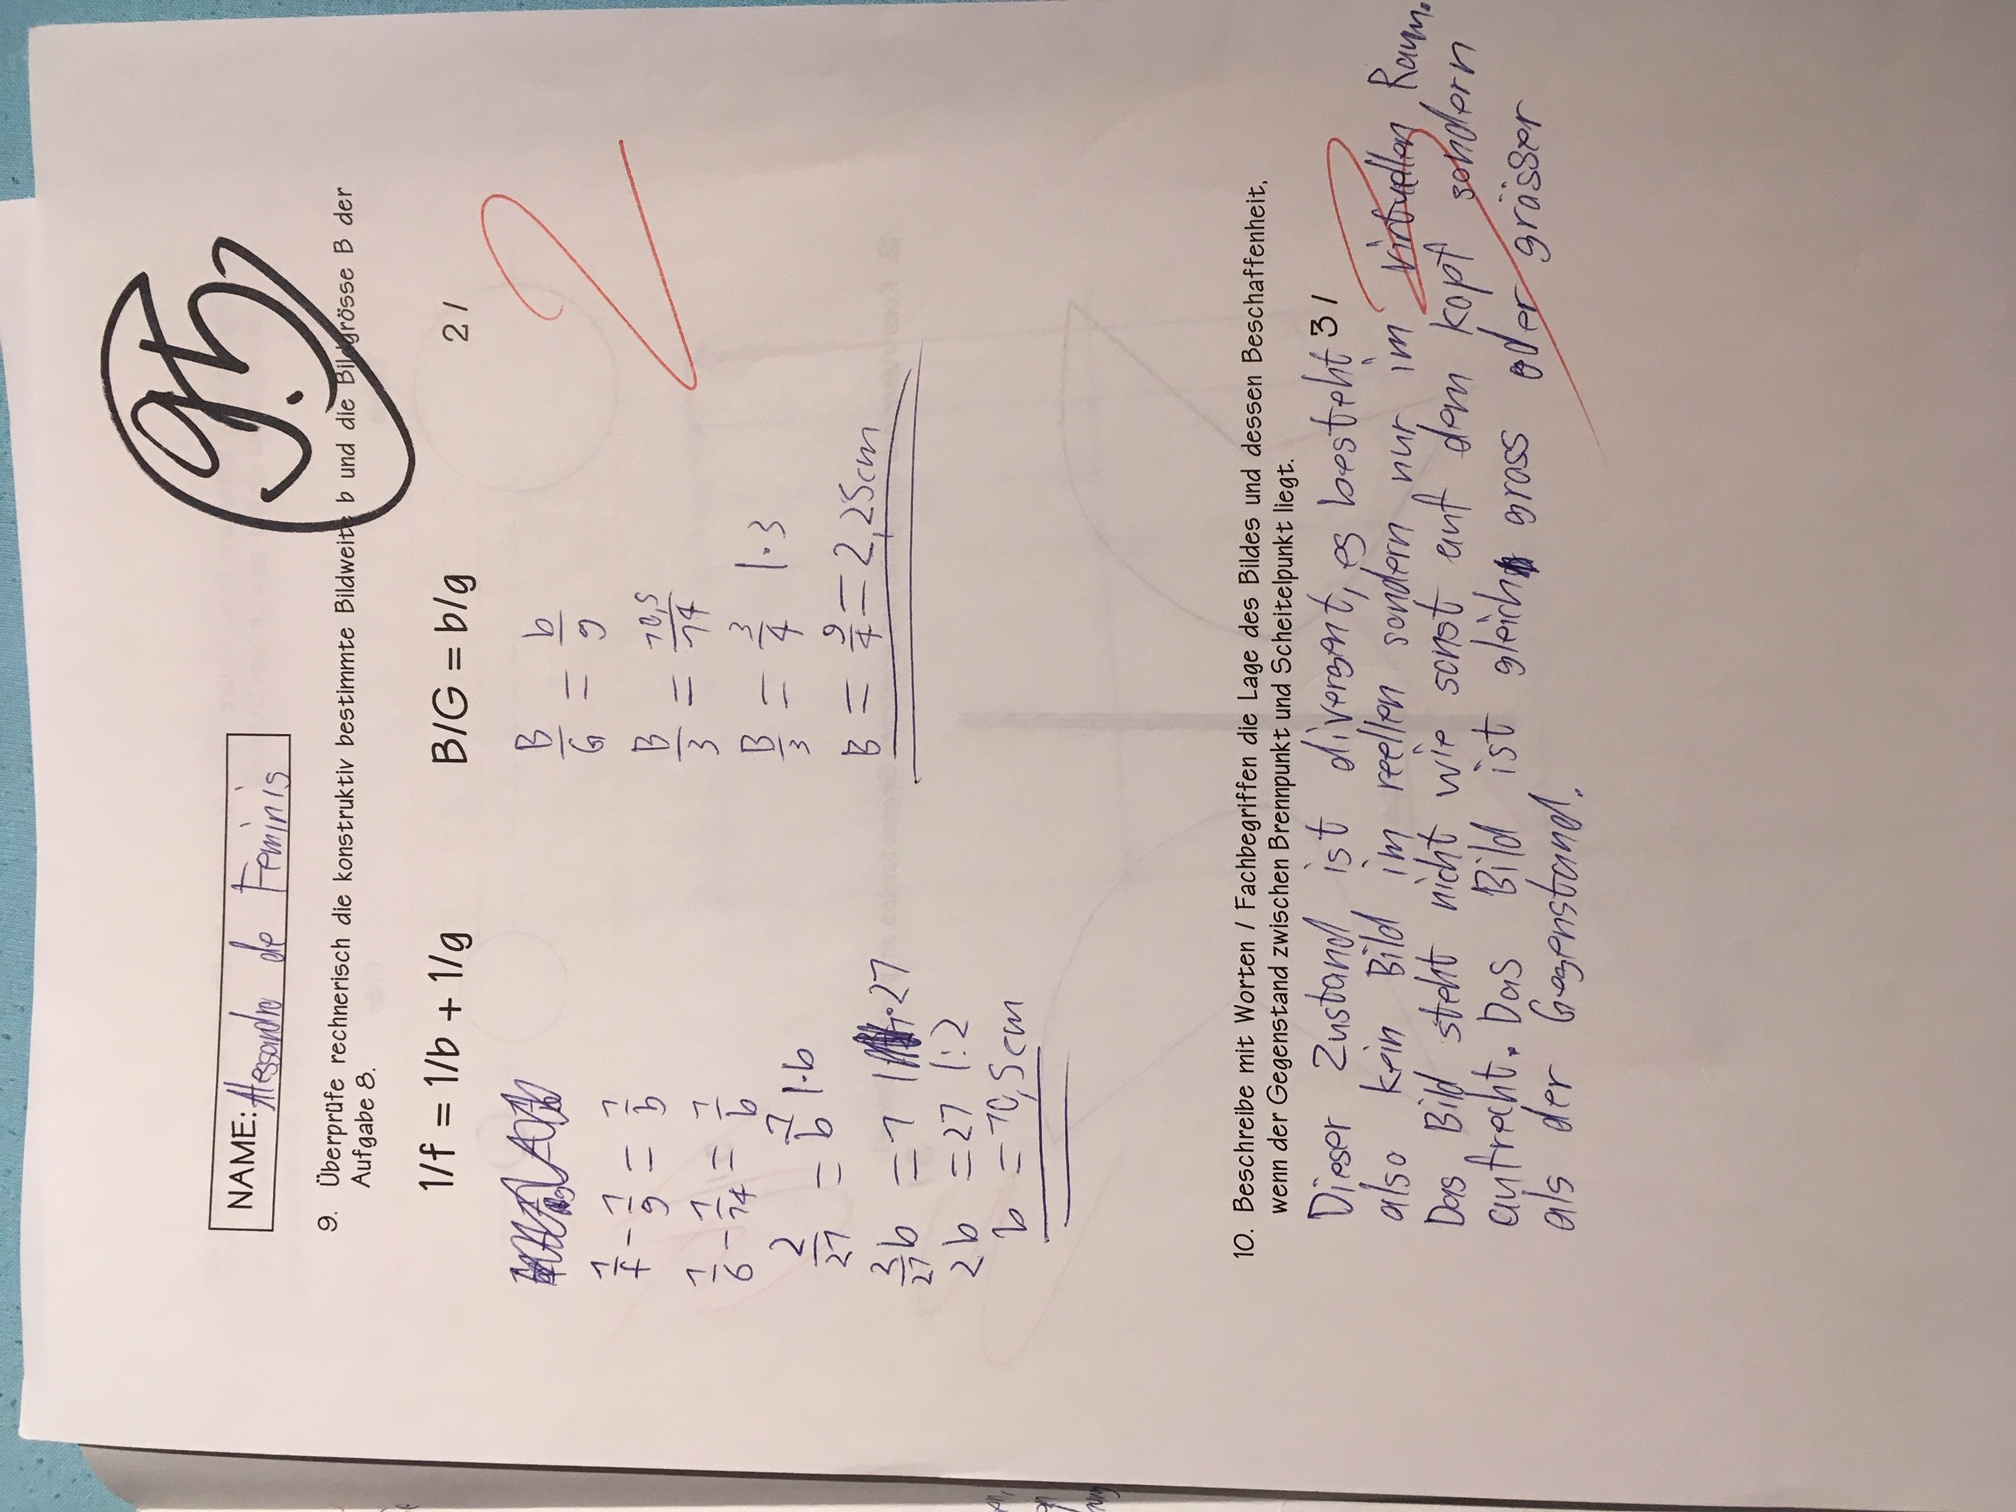 9.5
NAME: Alessandro de Feminis
9. Überprüfe rechnerisch die konstruktiv bestimmte Bildweite b und die Bildgrösse B der
Aufgabe 8.
1/f = 1/b + 1/g
B/G = b/g
2 /
2
1/f - 1/g = 1/b
1/6 - 1/14 = 1/b
2/21 = 1/b |·b
2b = 21 |:2
b = 10,5cm
B/G = b/g
B/3 = 10,5/14
B/3 = 3/4 |·3
B = 9/4 = 2,25cm
10. Beschreibe mit Worten / Fachbegriffen die Lage des Bildes und dessen Beschaffenheit,
wenn der Gegenstand zwischen Brennpunkt und Scheitelpunkt liegt.
3 /
3
Dieser Zustand ist divergent, es besteht
also kein Bild im reellen sondern nur im virtuellen Raum.
Das Bild steht nicht wie sonst auf dem Kopf sondern
aufrecht. Das Bild ist gleich gross oder grösser
als der Gegenstand.